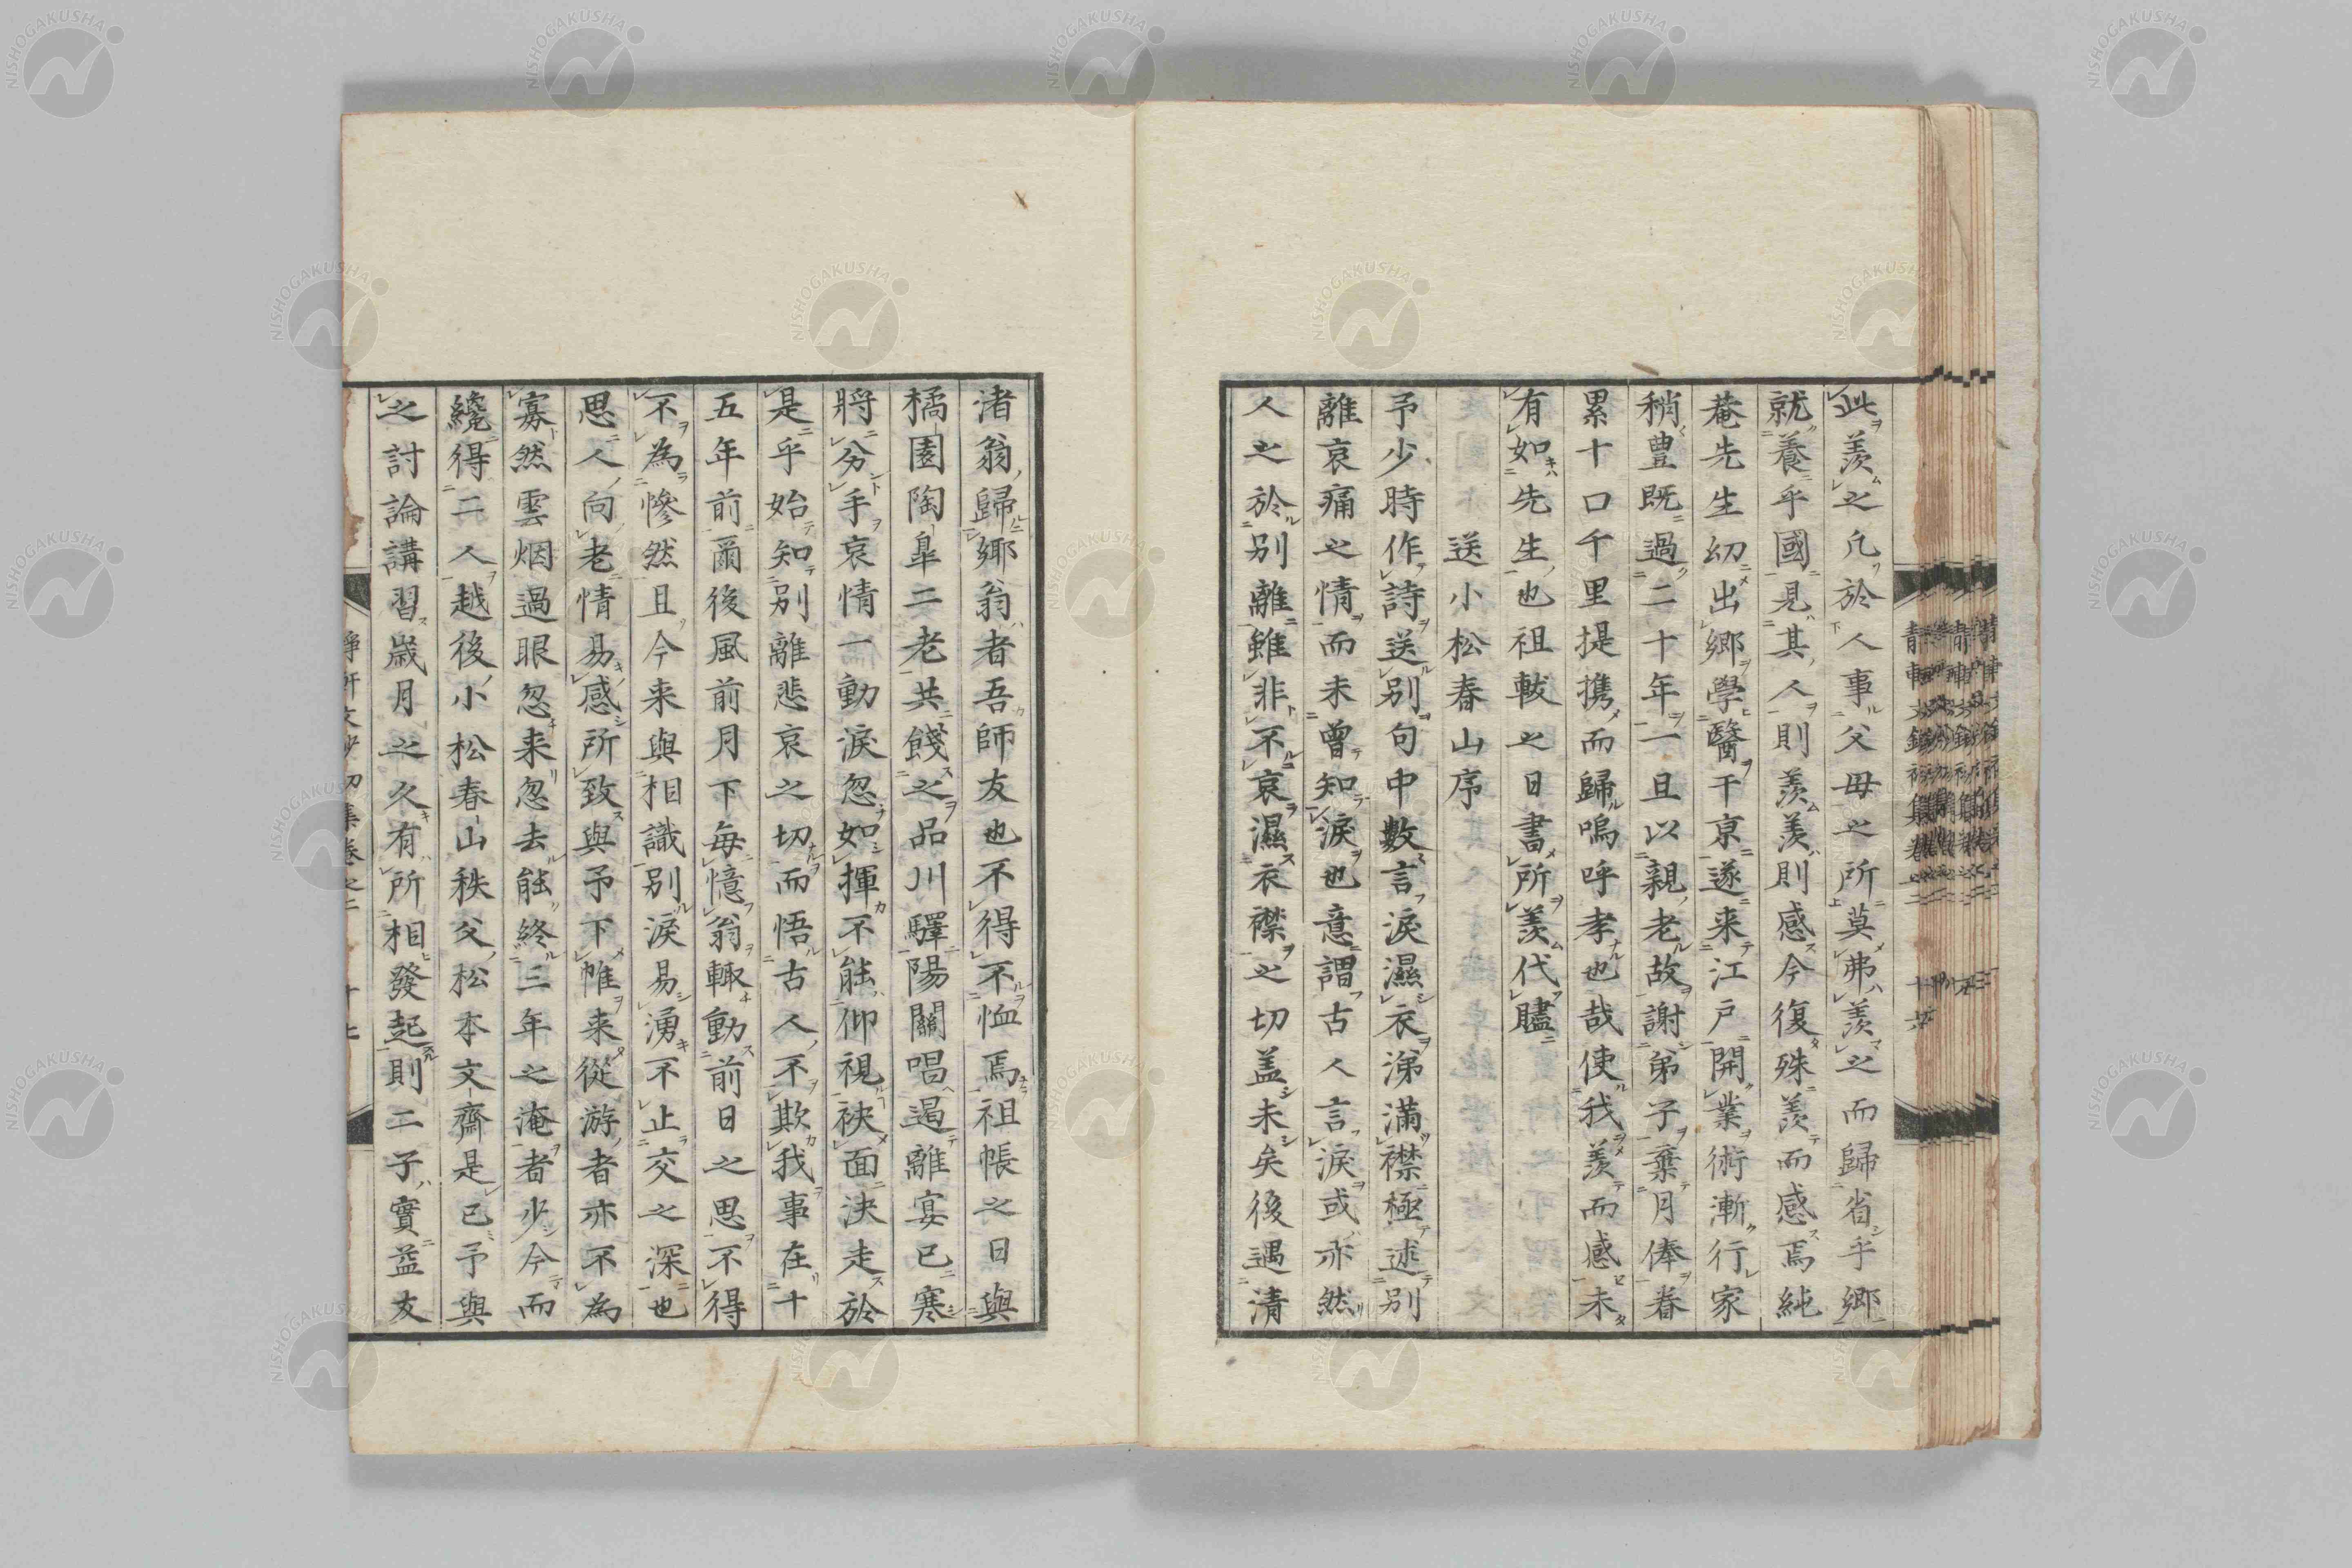 此羨之凢於人事父母之所莫弗羨之而歸省乎郷
就養乎國見其人則羨羨則感今復殊羨而感焉純
菴先生幼出郷學醫于京遂来江戸開業術漸行家
稍豊既過二十年一旦以親老故謝弟子棄月俸眷
累十口千里提携而歸嗚呼孝也哉使我羨而感未
有如先生也祖載之日書所羨代贐
送小松春山序
予少時作詩送別句中數言淚濕衣涕滿襟極述別
離哀痛之情而未曽知淚也意謂古人言淚或亦然
人之於別離雖非不哀濕衣襟之切盖未矣後遇清
渚翁歸郷翁者吾師友也不得不恤焉祖帳之日與
橘園陶皐二老共餞之品川驛陽關唱遏離宴已寒
將分手哀情一動淚忽如揮不能仰視袂面決走於
是乎始知別離悲哀之切而悟古人不欺我事在十
五年前爾後風前月下毎憶翁輙動前日之思不得
不為慘然且今来與相識別淚易湧不止交之深也
思人向老情易感所致與予下帷来從游者亦不為
寡然雲烟過眼忽来忽去能終三年之淹者少今而
纔得二人越後小松春山秩父松本文齋是已予與
之討論講習歳月之久有所相發起則二子實益友